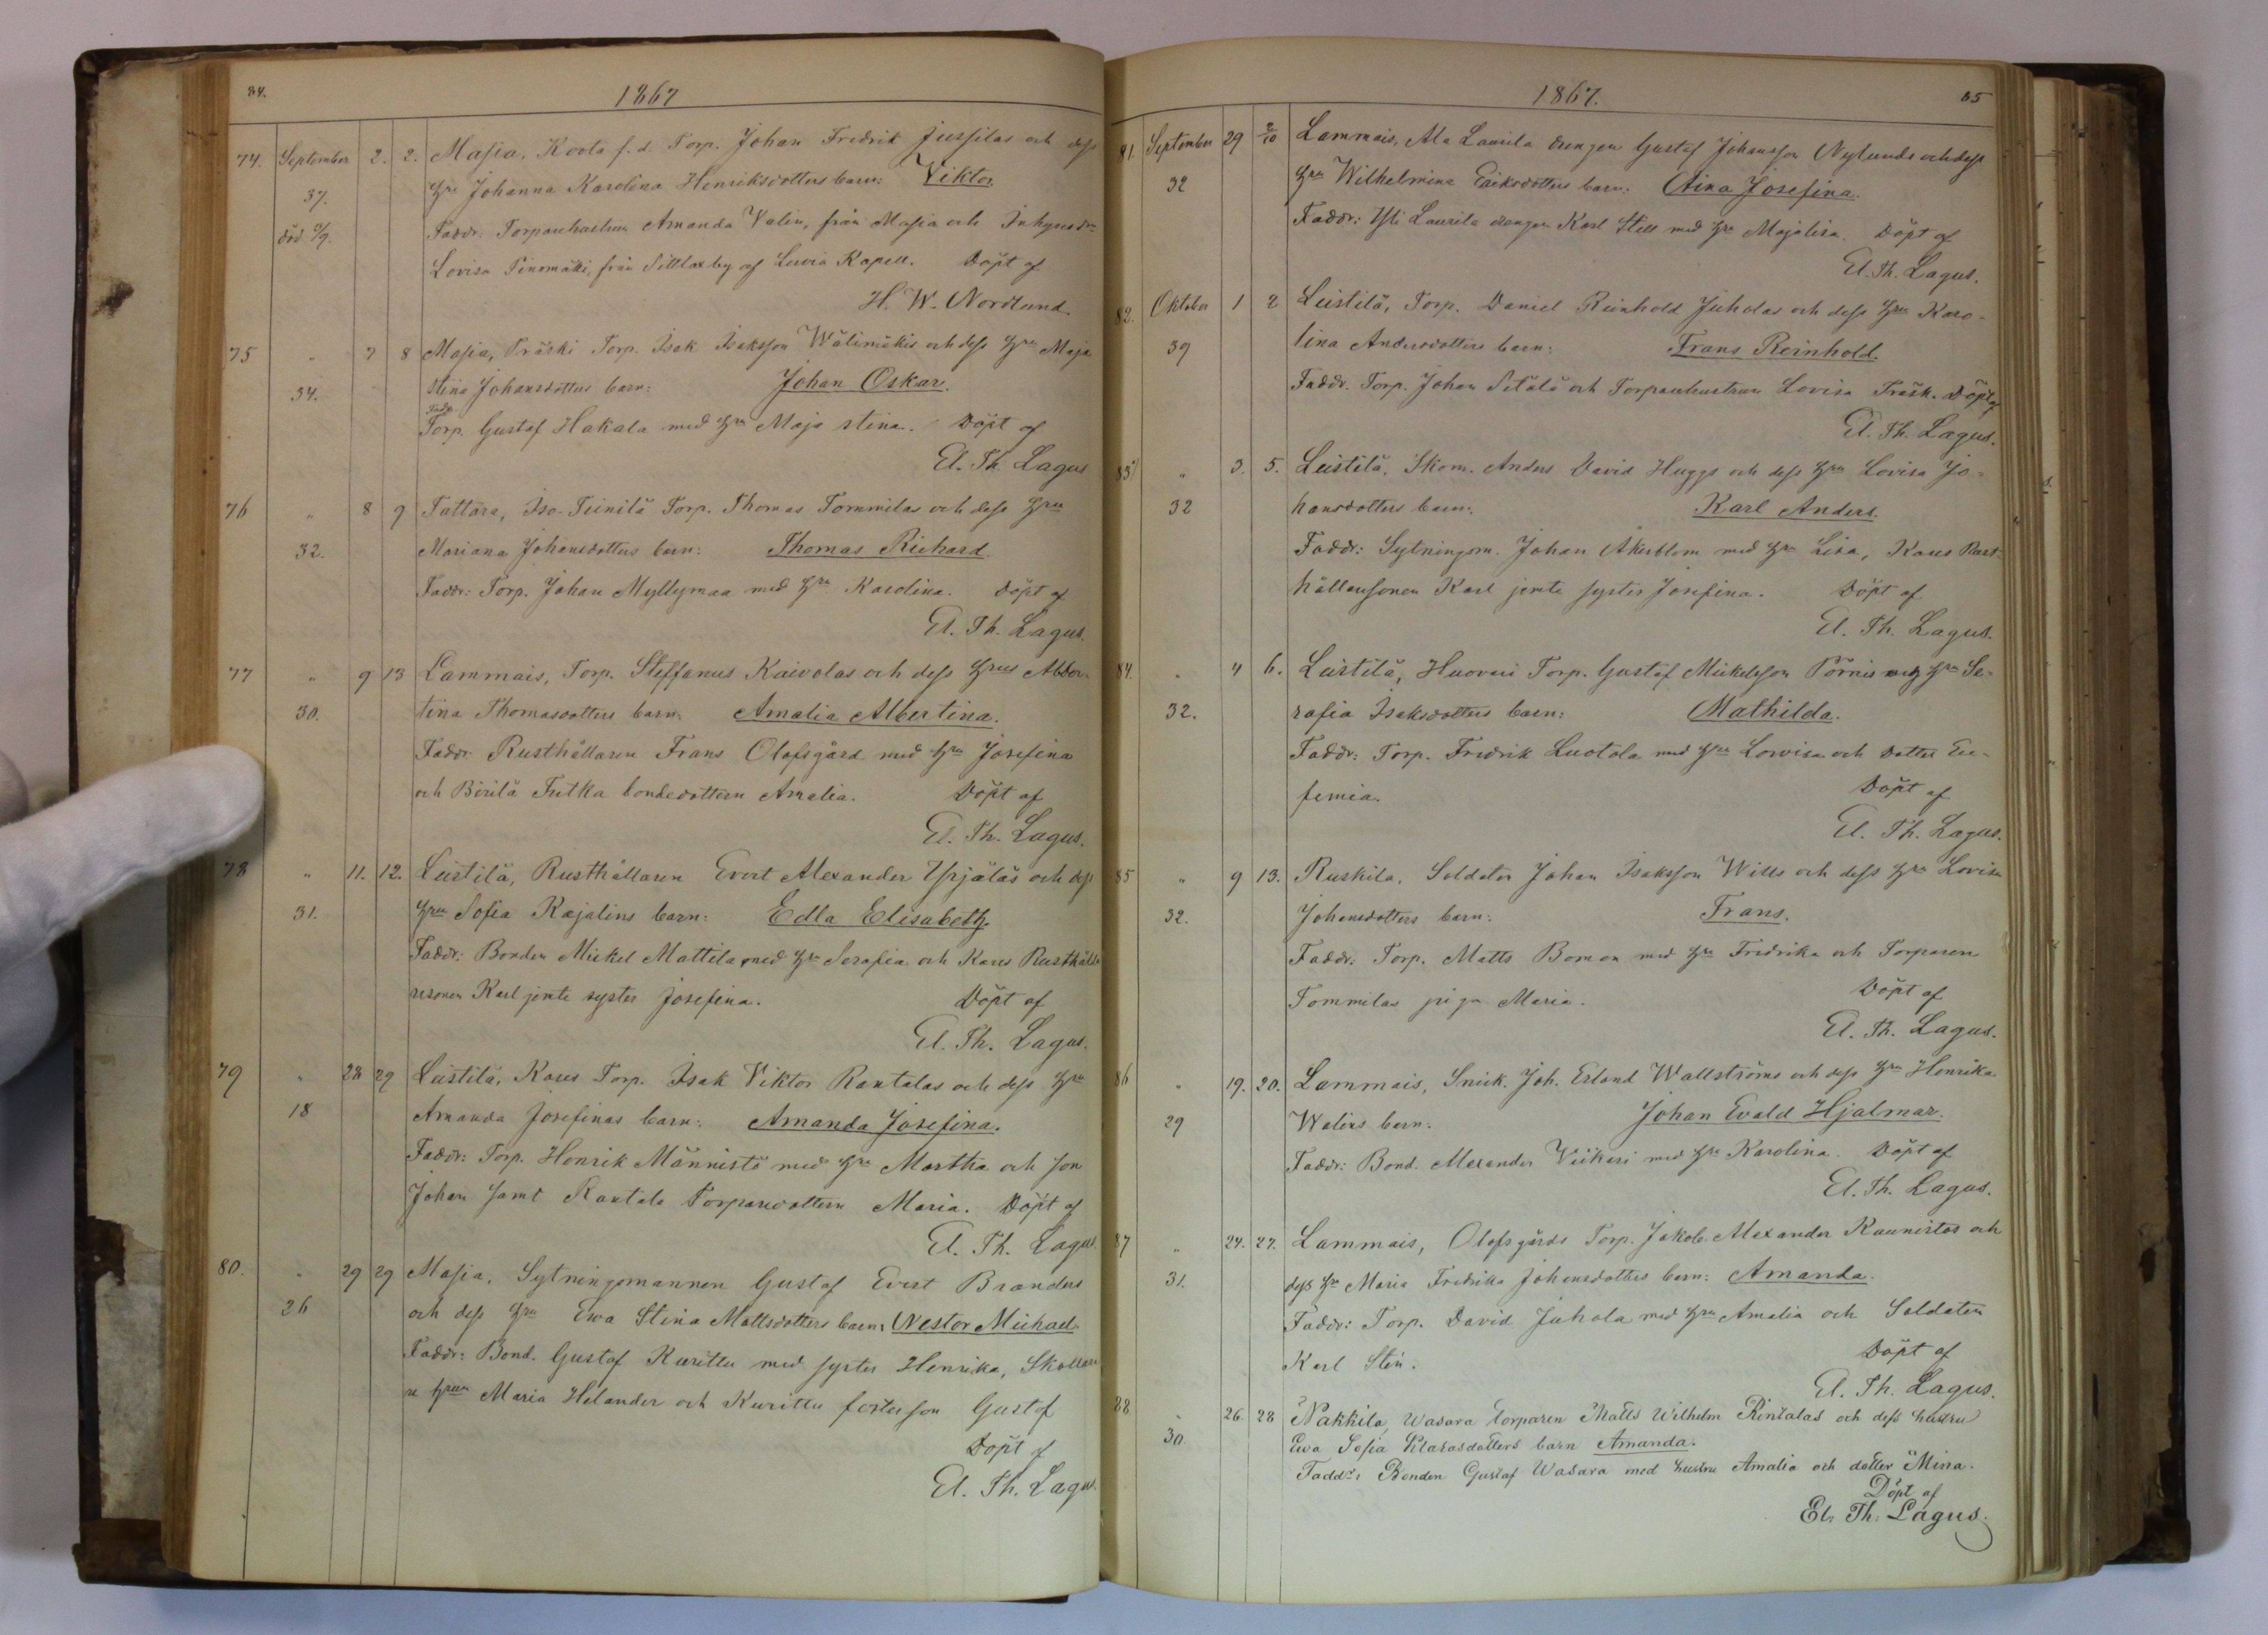 84.
1867
74. September 2. 2. Masia, Koota f. d. Torp. Johan Fredrik Jussilas och dess
37. hru Johanna Karolina Henriksdotters barn: Viktor
död /9. Faddr: Torparehustrun Amanda Valin, från Masia och Inhyses
Lovisa Pinomäki, från Sittlaxby af Luvia Kapell. Döpt af
H. W. Nordlund.
75 „ 7 8 Masia, Präski Torp. Isak Isaksson Wälimäkis och dess hru Maja
34. stina Johansdotters barn: Johan Oskar.
Fadr. Torp. Gustaf Hakala med hru Maja stina. Döpt af
El. Th. Lagus
76 „ 8 9 Tattara, Iso-Teinilä Torp. Thomas Tommilas och dess hru
32. Mariana Johansdotters barn: Thomas Richard.
Faddr: Torp. Johan Myllymaa med hru Karolina. Döpt af
El. Th. Lagus.
77 „ 9 13 Lammais, Torp. Steffanus Kaivolas och dess hrus
30. tina Thomasdotters barn: Amalia Albertina.
Faddr: Rusthållaren Frans Olofsgård med hru Josefina
och Birilä Futka bondedottern Amalia. Döpt af
El. Th. Lagus.
78 „ 11. 12. Leistilä, Rusthållaren Evert Alexander Yrjäläs och dess
31. hru Sofia Kajalins barn: Edla Elisabeth.
Faddr: Bonden Mickel Mattila med hru Serafia och Kares Rusthålla
resonen Karl jemte syster Josefina. Döpt af
El. Th. Lagus.
79 „ 28 29 Leistilä, Kares Torp. Isak Viktor Rantalas och dess hru
18 Amanda Josefinas barn: Amanda Josefina.
Faddr: Torp. Henrik Männistö med hru Martha och son
Johan samt Rantala Torparedottern Maria. Döpt af
El. Th. Lagus.
80. „ 29 29 Masia, Sytningsmannen Gustaf Evert Branders
26 och dess hru Ewa Stina Mattsdotters barn: Nestor Michael
Faddr: Bond. Gustaf Kurittu med syster Henrika,
hrun Maria Helander och Kurittu fosterson Gustaf
Döpt af
El. Th. Lagus.
1867.
85
81. September 29 2/10 Lammais, Ala Laurila drengen Gustaf Johansson Nylunds och dess
32 hru Wilhelmina Eriksdotters barn: Aina Josefina.
Faddr: Yli Laurila drengen Karl Sten med hru Majalisa. Döpt af
El. Th. Lagus.
82. Oktober 1 2 Leistilä, Torp. Daniel Reinhold Juholas och dess hru Karo-
39 lina Andersdotters barn: Frans Reinhold.
Faddr. Torp. Johan Setälä och Torparehustrun Lovisa Träsk. Döpt af
El. Th. Lagus.
83 „ 3. 5. Leistilä, Skom. Anders David Huggs och dess hru Lovisa Jo-
32 hansdotters barn: Karl Anders.
Faddr: Sytningsm. Johan Åkerblom med hru Lisa, Kares Rust-
hållaresonen Karl jemte syster Josefina. Döpt af
El. Th. Lagus.
84. „ 4 6. Leistilä, Huovari Torp. Gustaf Mickelsson Pörnis hru Se-
32. rafia Isaksdotters barn: Mathilda.
Faddr: Torp. Fredrik Luotola med hru Lowisa och dotter Eu-
femia. Döpt af
El. Th. Lagus.
85 „ 9 13. Ruskila, Soldaten Johan Isaksson Wills och dess hru Lovisa
32. Johansdotters barn: Frans.
Faddr: Torp. Matts Boman med hru Fredrika och Torparen
Tommilas piga Maria. Döpt af
El. Th. Lagus.
86 „ 19. 20. Lammais, Snick. Joh. Erland Wallströms och dess hru Henrika
29 Walins barn: Johan Evald Hjalmar.
Faddr: Bond. Alexander Viikari med hru Karolina. Döpt af
El. Th. Lagus.
87 „ 24. 27. Lammais, Olofsgårds Torp. Jakob Alexander Kaunistos och
31. dess hru Maria Fredrika Johansdotters barn: Amanda.
Faddr: Torp. David Juhola med hru Amalia och Soldaten
Karl Sten. Döpt af
El. Th. Lagus.
88. „ 26. 28 Nakkila, Wasara torparen Matts Wilhelm Rintalas och dess hustru
30. Ewa Sofia Klarasdotters barn Amanda.
Faddr: Bonden Gustaf Wasara med hustru Amalia och dotter Mina.
Döpt af
El. Th. Lagus.